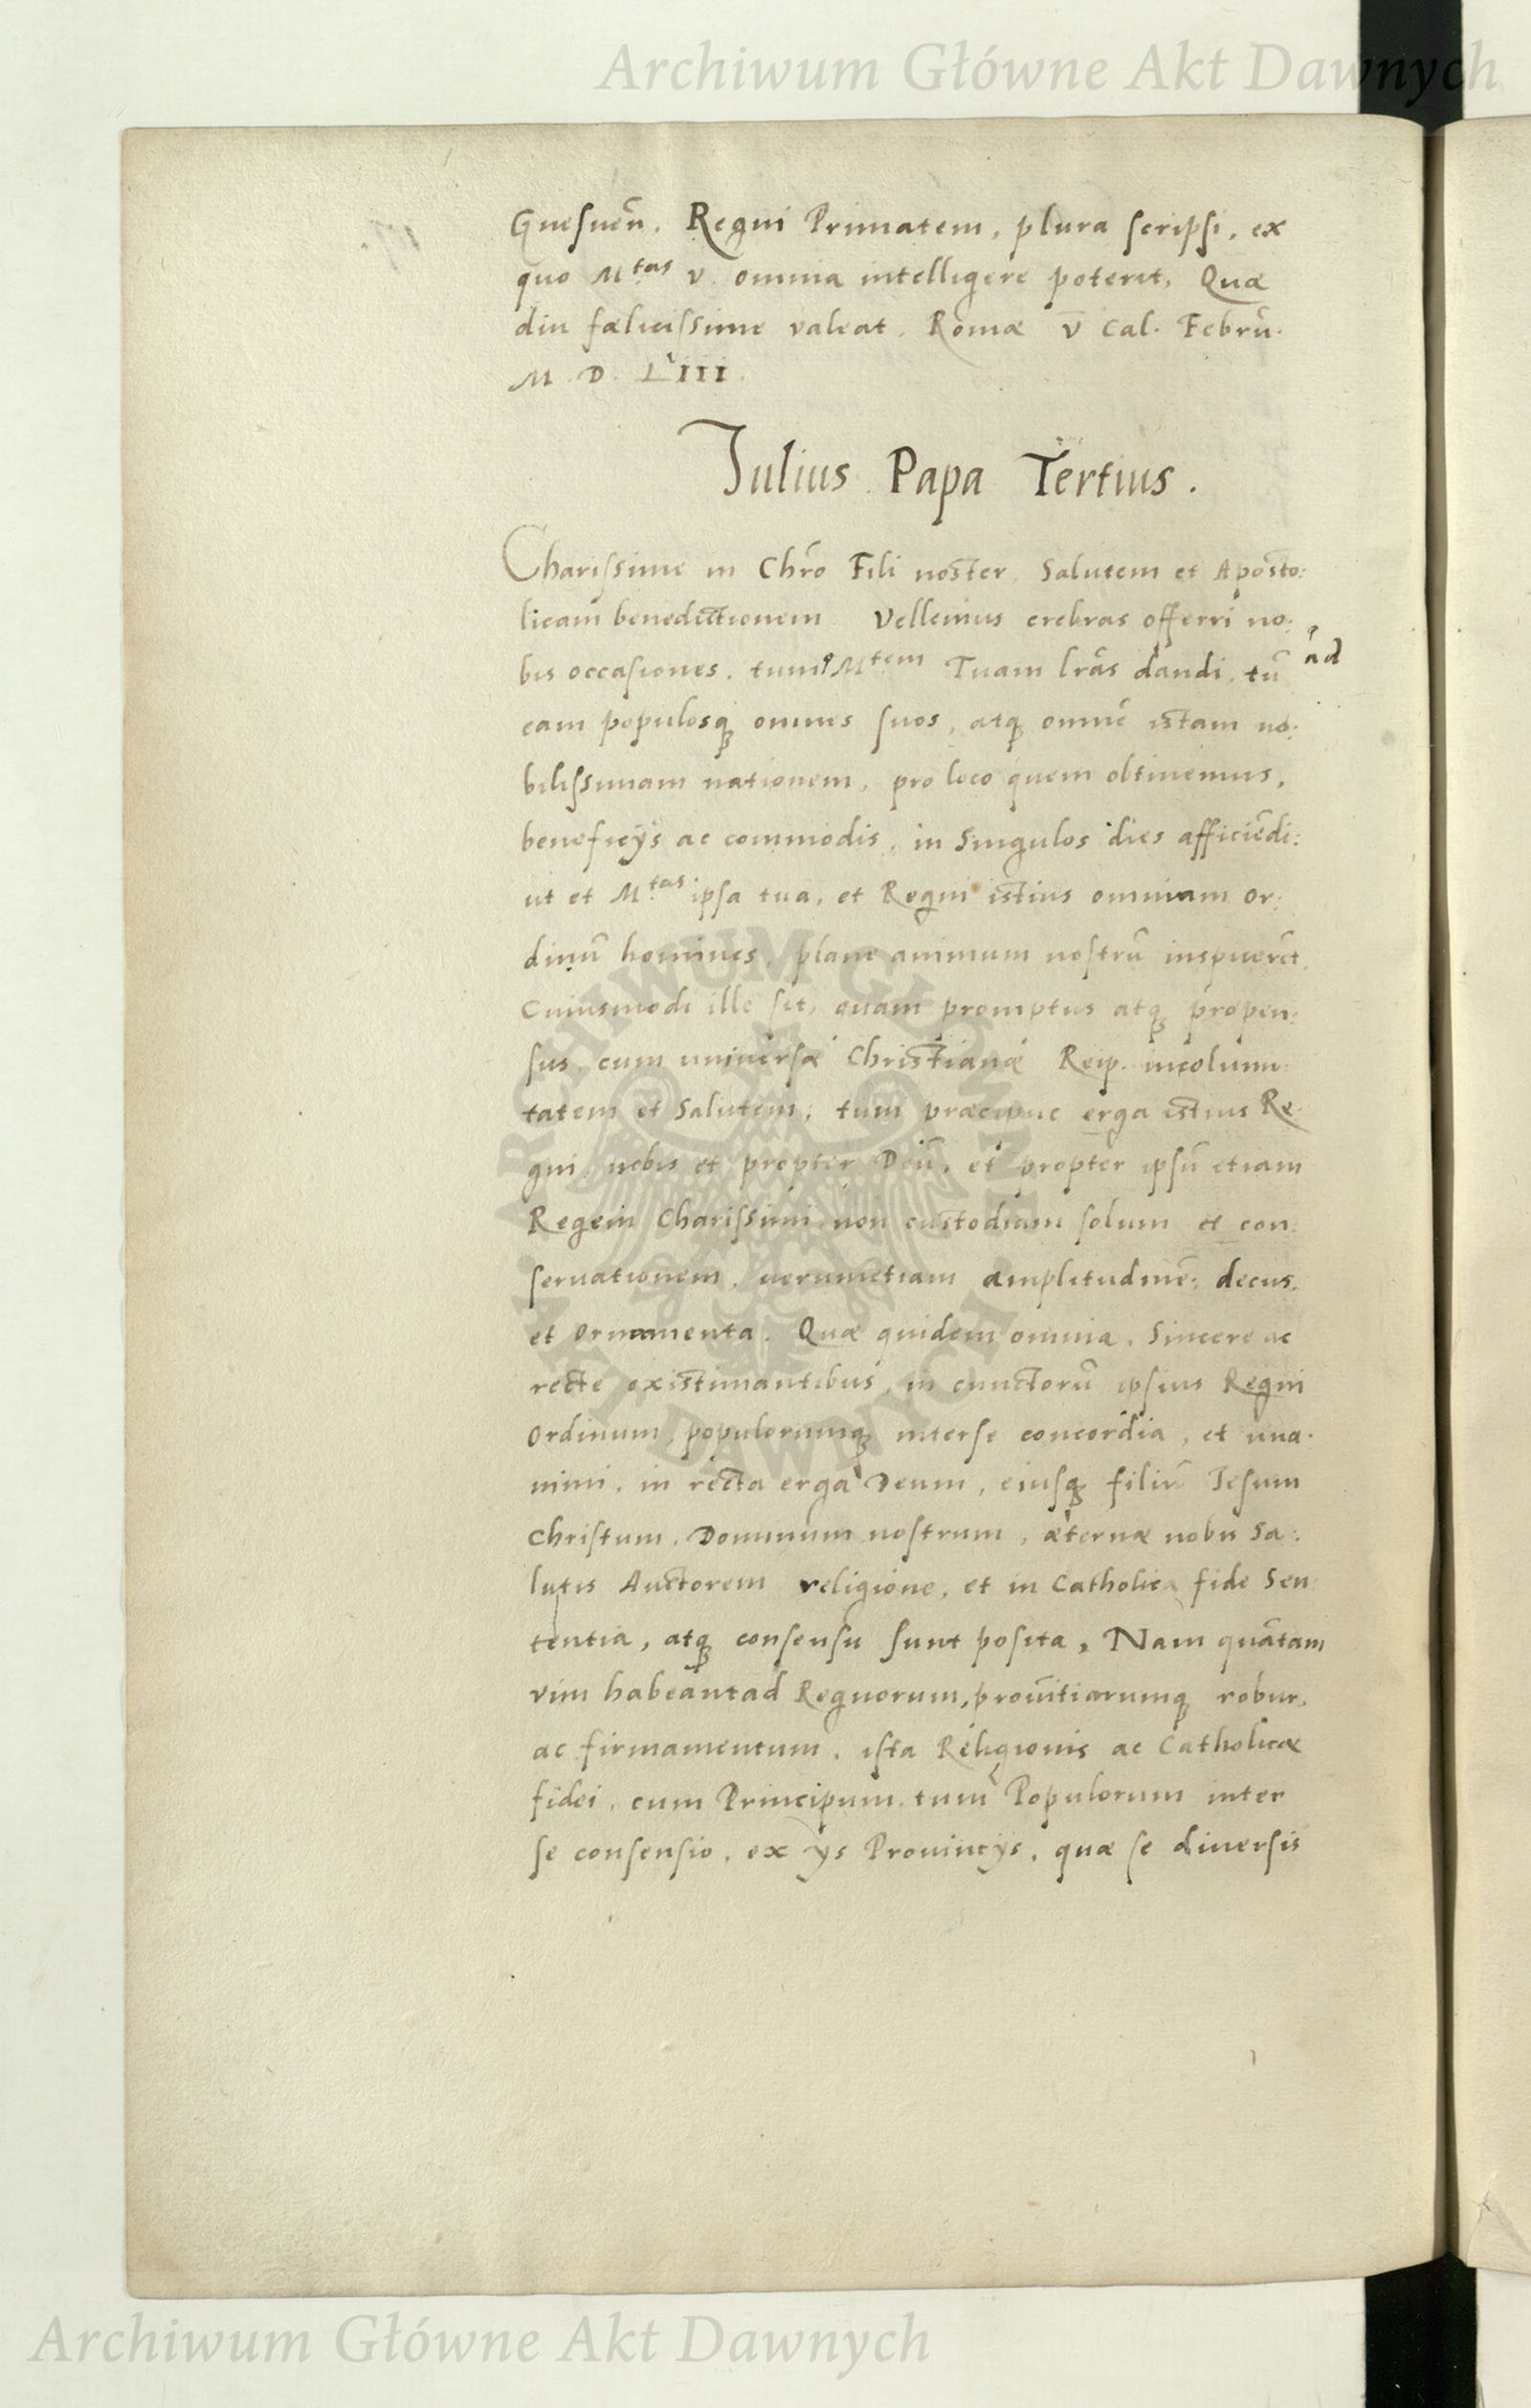 Archiwum Główne Akt Dawnych
Gnesneñ. Regni Primatem, plura scripsi, ex
quo M.tas v. omnia intelligere poterit, Quæ
diu fælicissime valeat. Romæ v Cal. Febrū.
M. D. LIII.
Iulius Papa Tertius.
Charissime in Chr̃o Fili noster. Salutem et Aposto:
licam benedictionem. Vellemus crebras offerri no:
bis occasiones, tum M.tem Tuam lr̃as dandi, tū
ad
eam populosq; omnes suos, atq; omnē istam no:
bilissimam nationem, pro loco quem obtinemus,
beneficijs ac commodis, in singulos dies afficiēdi:
ut et M.tas ipsa tua, et Regni istius omniam or:
dinū homines, plane animum nostrū inspicerēt.
Cuiusmodi ille sit, quam promptus atq; propen:
sus, cum universæ Christianæ Reip. incolumi:
tatem et Salutem, tum præcipue erga istius Re:
gni, nobis et propter Deū, et propter ipsū etiam
Regem Charissimi, non custodiam solum et con:
servationem, verumetiam amplitudinē, decus,
et Ornamenta. Quæ quidem omnia, Sincere ac
recte existimantibus, in cunctorū ipsius Regni
Ordinum, populorumq; interse concordia, et una:
nimi, in recta erga Deum, eiusq; filiū Iesum
Christum, Dominum nostrum, æternæ nobis Sa:
lutis Auctorem religione, et in Catholica fide Sen:
tentia, atq; consensu sunt posita. Nam quātam
vim habeant ad Regnorum, provintiarumq; robur,
ac firmamentum, ista Religionis ac Catholicæ
fidei, cum Principum, tum Populorum inter
se consensio, ex ijs Provincijs, quæ se diversis
Archiwum Główne Akt Dawnych